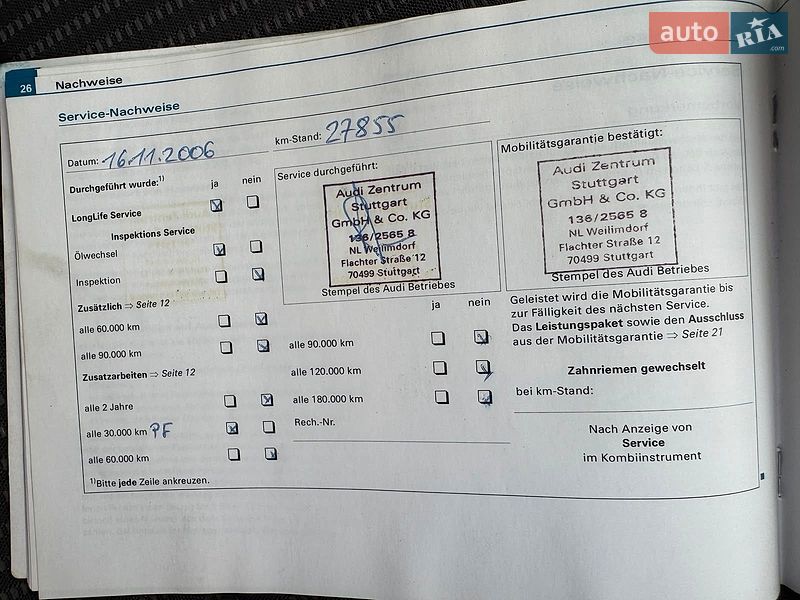 auto RIA .com
26 Nachweise
Service-Nachweise
Datum: 16.11.2006
km-Stand: 27855
Durchgeführt wurde:¹⁾ ja nein
LongLife Service
Inspektions Service
Ölwechsel
Inspektion
Zusätzlich ⇒ Seite 12
alle 60.000 km
alle 90.000 km
Zusatzarbeiten ⇒ Seite 12
alle 2 Jahre
alle 30.000 km PF
alle 60.000 km
¹⁾Bitte jede Zeile ankreuzen.
Service durchgeführt:
Audi Zentrum
Stuttgart
GmbH & Co. KG
136/2565 8
NL Weilimdorf
Flachter Straße 12
70499 Stuttgart
Stempel des Audi Betriebes
ja nein
alle 90.000 km
alle 120.000 km
alle 180.000 km
Rech.-Nr.
Mobilitätsgarantie bestätigt:
Audi Zentrum
Stuttgart
GmbH & Co. KG
136/2565 8
NL Weilimdorf
Flachter Straße 12
70499 Stuttgart
Stempel des Audi Betriebes
Geleistet wird die Mobilitätsgarantie bis
zur Fälligkeit des nächsten Service.
Das Leistungspaket sowie den Ausschluss
aus der Mobilitätsgarantie ⇒ Seite 21
Zahnriemen gewechselt
bei km-Stand:
Nach Anzeige von
Service
im Kombiinstrument